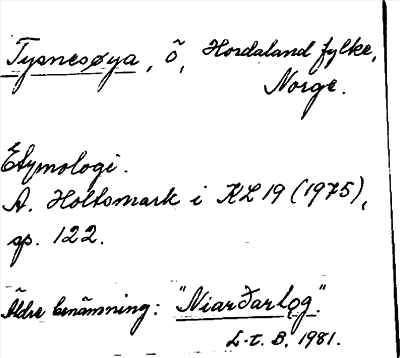 Tysnesøya, ö, Hordaland fylke,
Norge.
Etymologi.
A. Holtsmark i KL 19 (1975),
sp. 122.
Äldre benämning: "Niarðarlǫg"
L-t. B. 1981.